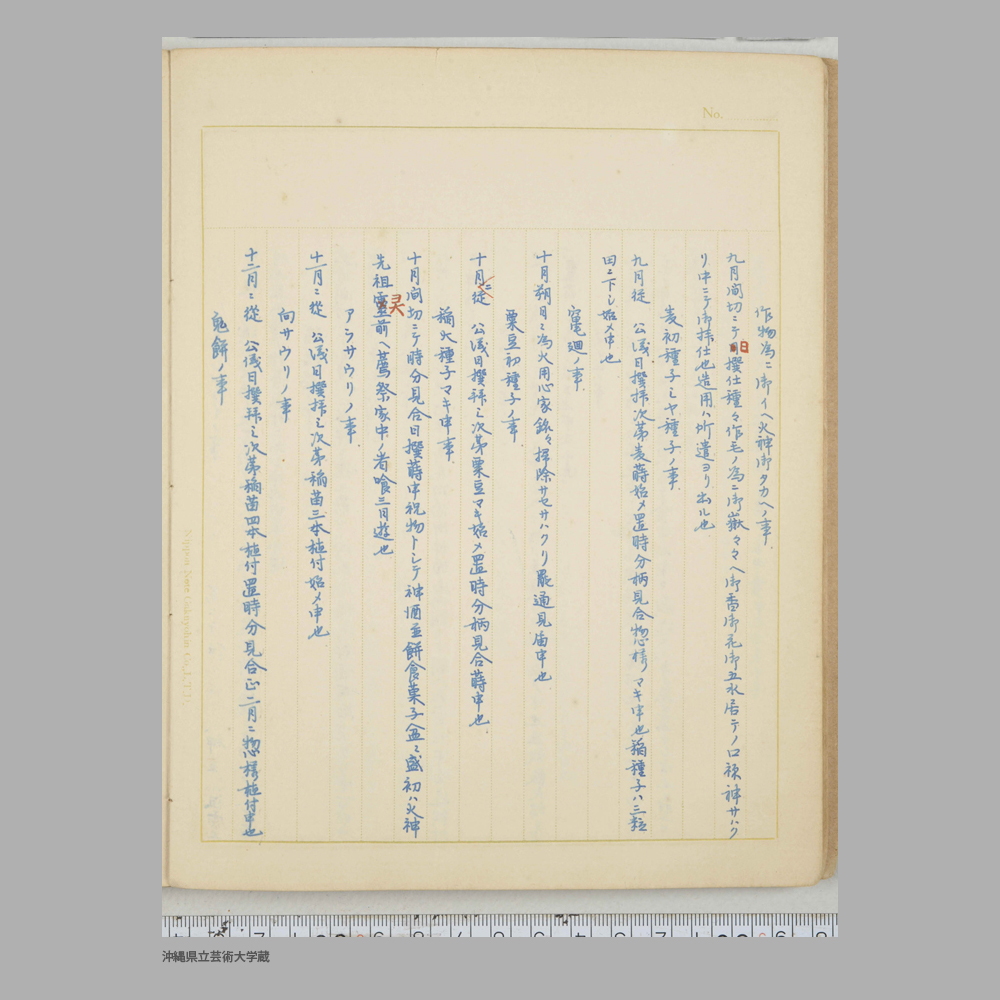 No.
作物為ニ御イヘ火神御タカヘノ事.
九月間切ニテ日撰仕種々作毛ノ為ニ御嶽々々へ御香御花御五水居テノロ根神サハク
リ中ニテ御拝仕也造用ハ所遣ヨリ出ル也
麦初種子ミヤ種子ノ事.
九月従 公儀日撰拝次第麦蒔始メ置時分柄見合惣様マキ申也稲種子ハ三粒
田ニ下シ始メ申也
竈廻ノ事.
十月朔日ニ為火用心家録々掃除サセサハクリ罷通見届申也
粟豆初種子ノ事.
十月ニ従 公儀日撰拝ミ次第粟豆マキ始メ置時分柄見合蒔申也.
稲大種子マキ申事.
十月間切ニテ時分見合日撰蒔申祝物トシテ神酒並餅食菓子盆ニ盛初ハ火神
先祖霊前ヘ薦祭家中ノ者喰三日遊也
灵
アラサウリノ事.
十一月ニ従 公儀日撰拝ミ次第稲苗三本植付始メ申也
向サウリノ事
十二月ニ従 公儀日撰拝ミ次第稲苗四本植付置時分見合正二月ニ惣様植付申也
鬼餅ノ事
沖縄県立芸術大学蔵